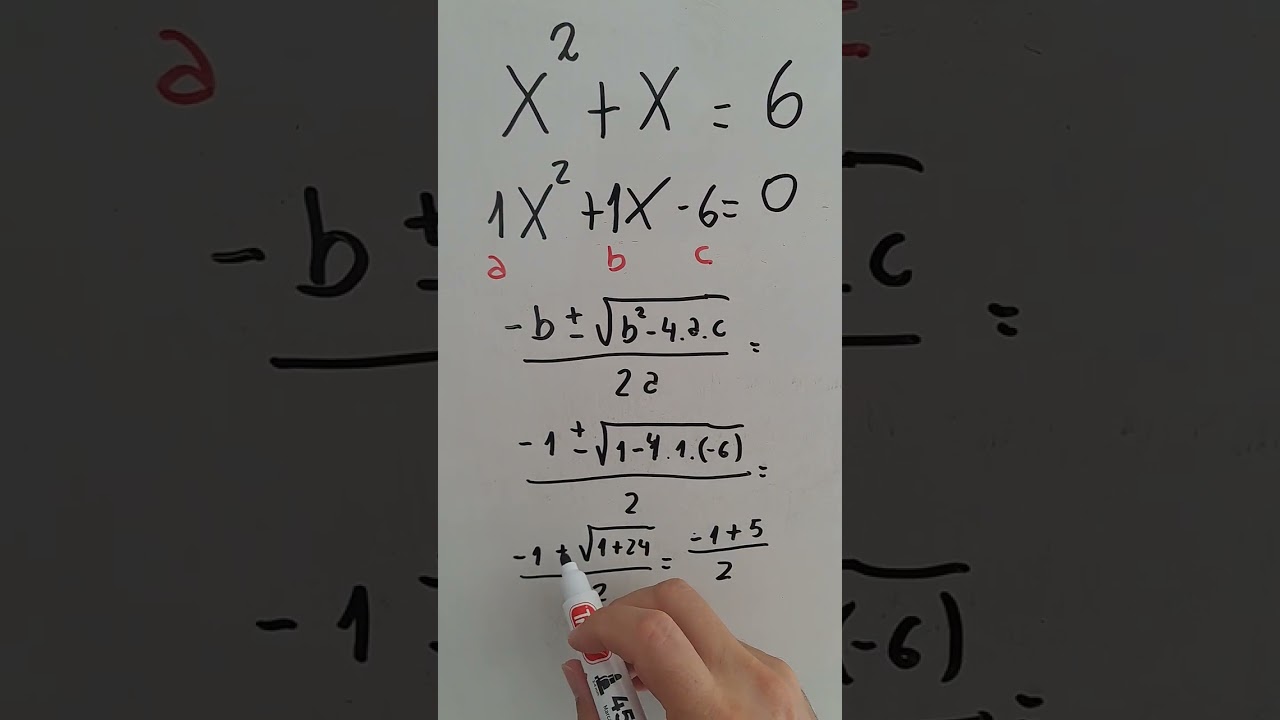 x² + x = 6
1x² + 1x - 6 = 0
a b c
-b ± √(b² - 4.a.c) =
2a
-1 ± √(1 - 4.1.(-6)) =
2
-1 ± √(1+24) = -1+5
2 2
45